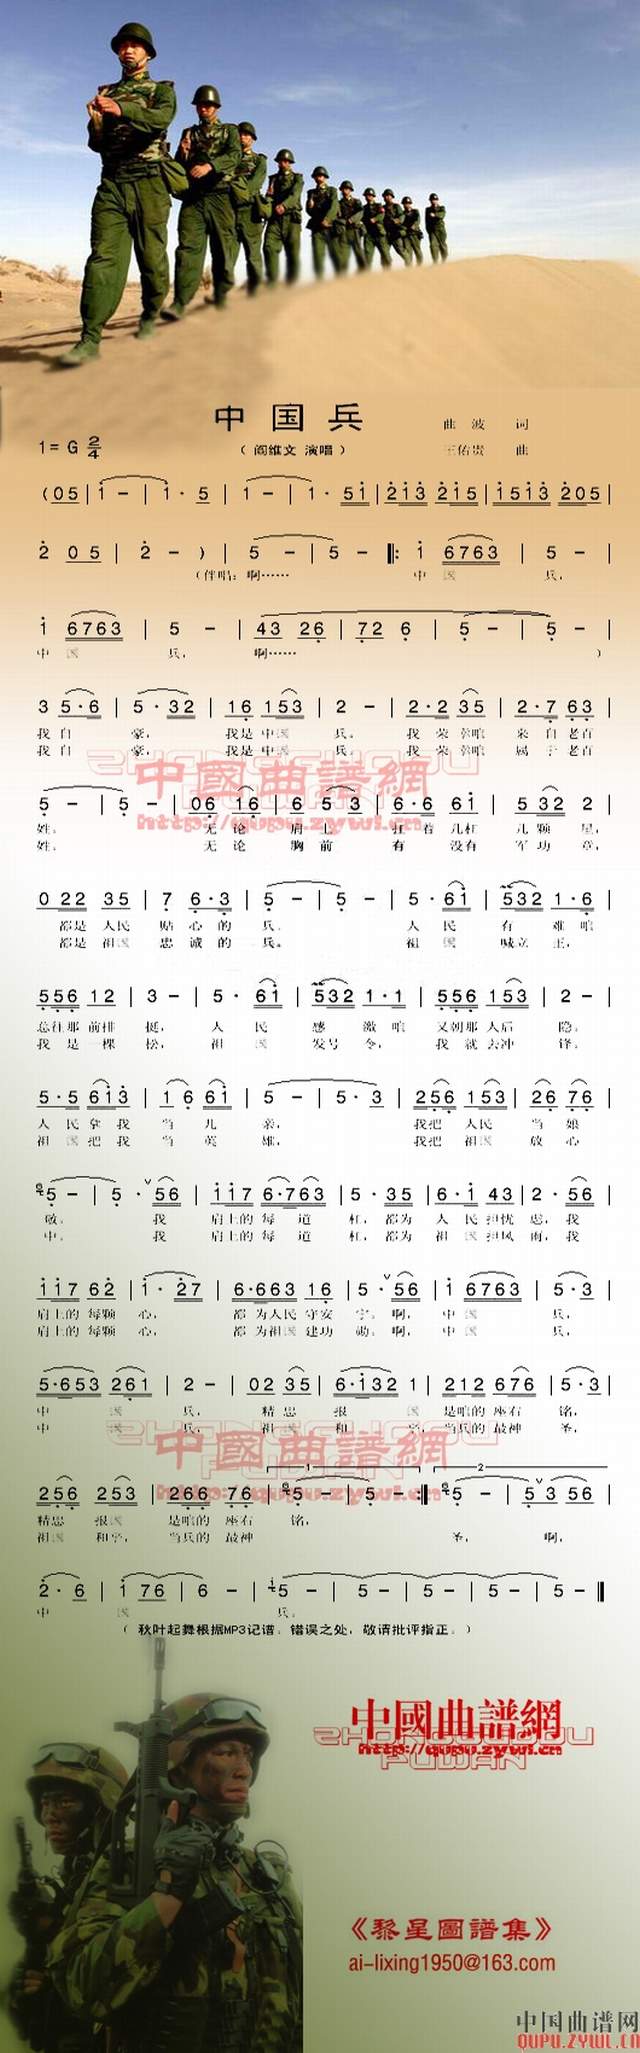 中 国 兵
曲 波 词
1= G 2/4
( 阎维文 演唱 )
王佑贵 曲
( 0 5 | 1 - | 1 · 5 | 1 - | 1 · 5 1 | 2 1 3 2 1 5 | 1 5 1 3 2 0 5 |
2 0 5 | 2 - ) | 5 - | 5 - ‖: 1 6 7 6 3 | 5 - |
(伴唱: 啊…… 中 国 兵,
1 6 7 6 3 | 5 - | 4 3 2 6 | 7 2 6 | 5 - | 5 - |
中 国 兵, 啊…… )
3 5 · 6 | 5 · 3 2 | 1 6 1 5 3 | 2 - | 2 · 2 3 5 | 2 · 7 6 3 |
我 自 豪, 我是 中国 兵。 我 荣 幸咱 来 自 老百
我 自 豪, 我是 中国 兵。 我 荣 幸咱 属 于 老百
5 - | 5 - | 0 6 1 6 | 6 5 3 | 6 · 6 6 1 | 5 3 2 2 |
姓。 无论 肩上 扛 着 几杠 几 颗 星,
姓。 无论 胸前 有 没有 军 功 章,
0 2 2 3 5 | 7 6 · 3 | 5 - | 5 - | 5 · 6 1 | 5 3 2 1 · 6 |
都是 人民 贴 心 的 兵。 人 民 有 难 咱
都是 祖国 忠 诚 的 兵。 祖 国 喊立 正,
5 5 6 1 2 | 3 - | 5 · 6 1 | 5 3 2 1 · 1 | 5 5 6 1 5 3 | 2 - |
总往那 前排 挺, 人 民 感 激 咱 又朝那 人后 隐。
我 是 一棵 松, 祖 国 发号 令, 我 就 去冲 锋。
5 · 5 6 1 3 | 1 6 6 1 | 5 - | 5 · 3 | 2 5 6 1 5 3 | 2 6 7 6 |
人 民 拿 我 当 儿 亲, 我把 人民 当 娘
祖 国 把 我 当 英 雄, 我把 祖国 放 心
5 - | 5 · 5 6 | 1 1 7 6 · 7 6 3 | 5 · 3 5 | 6 · 1 4 3 | 2 · 5 6 |
敬。 我 肩上的 每 道 杠, 都为 人 民 担忧 虑, 我
中。 我 肩上的 每 道 杠, 都为 祖 国 担风 雨, 我
1 1 7 6 2 | 1 · 2 7 | 6 · 6 6 3 1 6 | 5 · 5 6 | 1 6 7 6 3 | 5 · 3 |
肩上的 每颗 心, 都 为人民 守安 宁。 啊, 中 国 兵,
肩上的 每颗 心, 都 为祖国 建功 勋。 啊, 中 国 兵,
5 · 6 5 3 2 6 1 | 2 - | 0 2 3 5 | 6 · 1 3 2 1 | 2 1 2 6 7 6 | 5 · 3 |
中 国 兵, 精忠 报 国 是咱的 座右 铭,
中 国 兵, 祖国 和 平, 当兵的 最神 圣,
2 5 6 2 5 3 | 2 6 6 7 6 | 5 - | 5 - :‖ 5 - | 5 3 5 6 |
1
2
精忠 报国 是咱的 座右 铭,
祖国 和平, 当兵的 最神 圣, 啊,
2 · 6 | 1 7 6 | 6 - | 5 - | 5 - | 5 - | 5 - ‖
中 国 兵。
( 秋叶起舞根据MP3记谱。错误之处，敬请批评指正。)
中國曲譜網
ZHONGGUOQU
PUWANG
http://qupu.zywl.cn
《黎星圖譜集》
ai-lixing1950@163.com
中国曲谱网
QUPU.ZYWL.CN